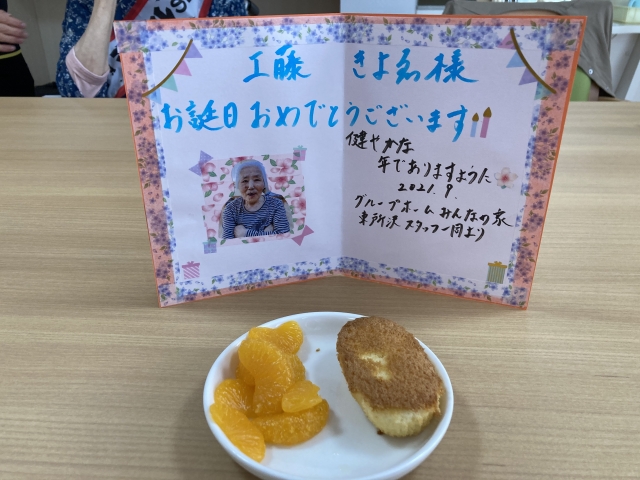 工藤 きよゑ様
お誕日おめでとうございます
健やかな
年でありますように
2021.9.
グループホームみんなの家
東所沢スタッフ一同より